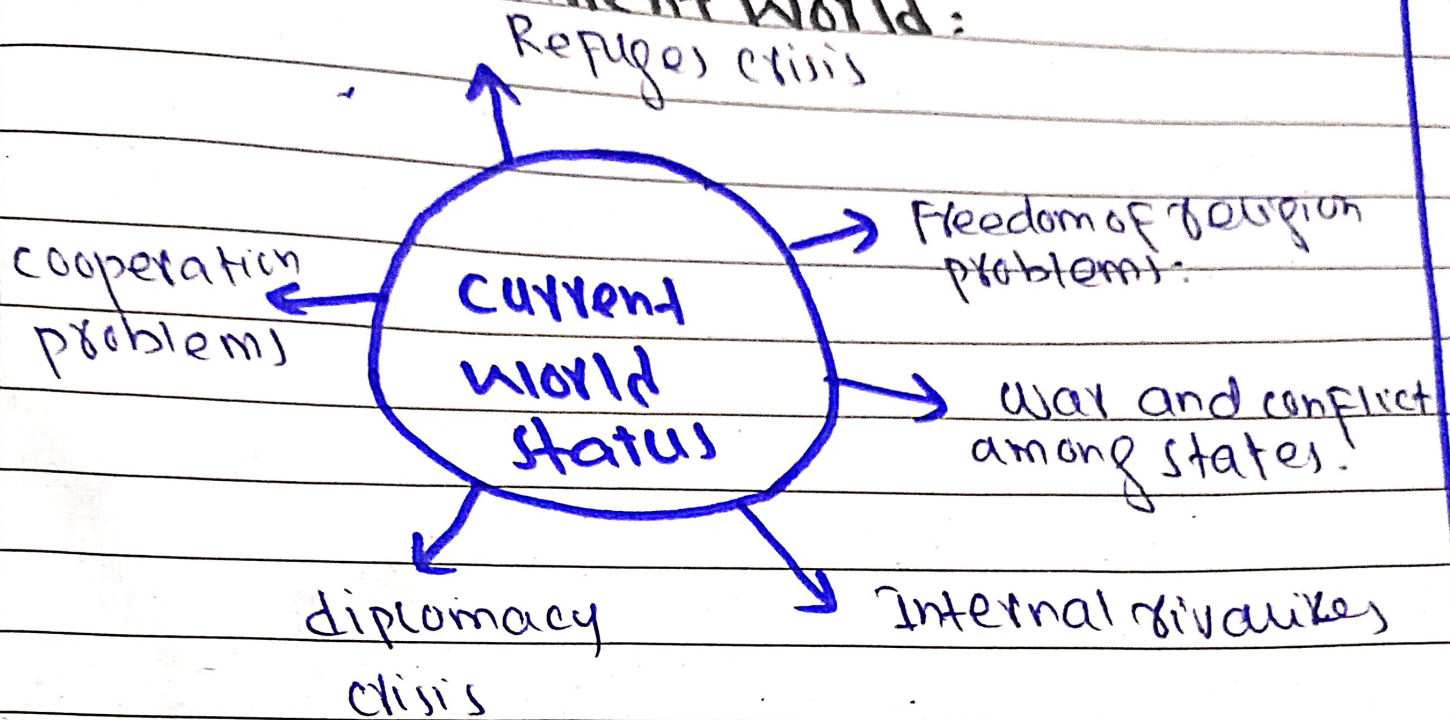 World:
Refuges crisis
Freedom of religion
problems:
cooperation
problems
current
world
status
war and conflict
among states.
diplomacy
crisis
Internal